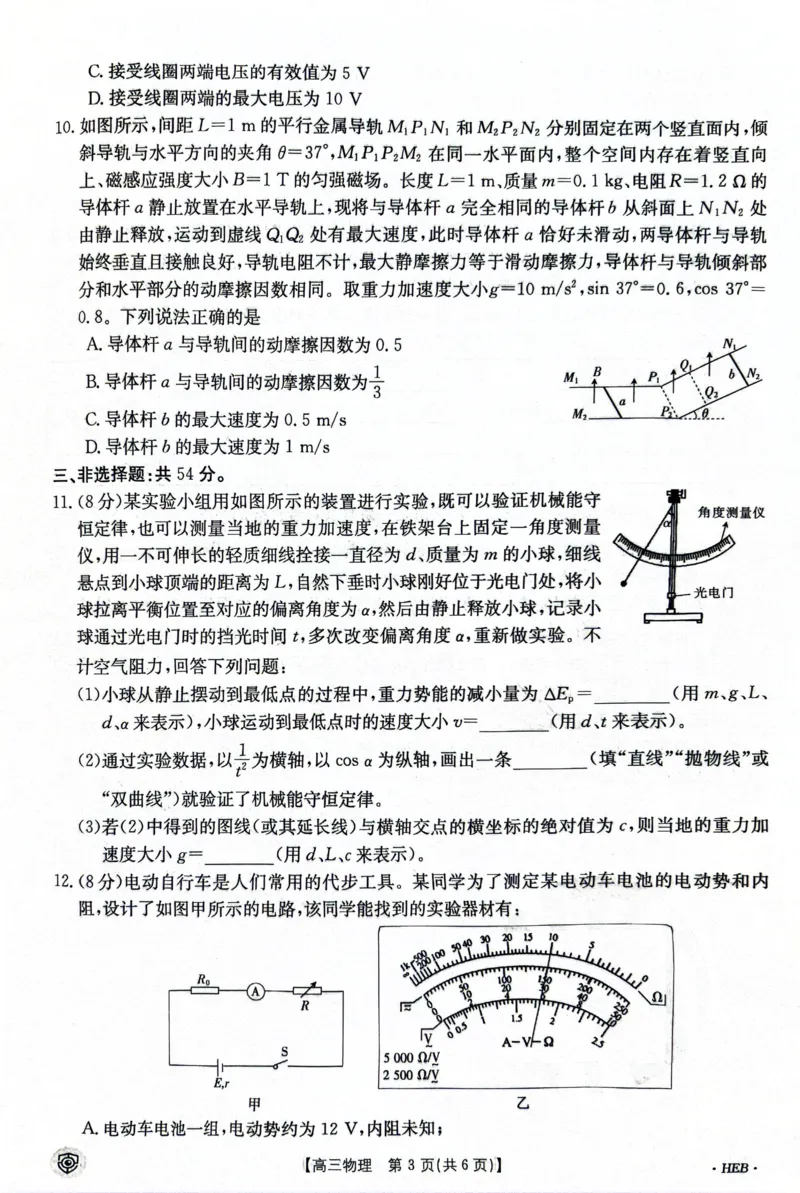 C. 接受线圈两端电压的有效值为 5 V
D. 接受线圈两端的最大电压为 10 V
10. 如图所示,间距 L=1 m 的平行金属导轨 M₁P₁N₁ 和 M₂P₂N₂ 分别固定在两个竖直面内,倾
斜导轨与水平方向的夹角 θ=37°,M₁P₁P₂M₂ 在同一水平面内,整个空间内存在着竖直向
上、磁感应强度大小 B=1 T 的匀强磁场。长度 L=1 m、质量 m=0.1 kg、电阻 R=1.2 Ω 的
导体杆 a 静止放置在水平导轨上,现将与导体杆 a 完全相同的导体杆 b 从斜面上 N₁N₂ 处
由静止释放,运动到虚线 Q₁Q₂ 处有最大速度,此时导体杆 a 恰好未滑动,两导体杆与导轨
始终垂直且接触良好,导轨电阻不计,最大静摩擦力等于滑动摩擦力,导体杆与导轨倾斜部
分和水平部分的动摩擦因数相同。取重力加速度大小g=10 m/s²,sin 37°=0.6,cos 37°=
0.8。下列说法正确的是
A. 导体杆 a 与导轨间的动摩擦因数为 0.5
B. 导体杆 a 与导轨间的动摩擦因数为 1/3
C. 导体杆 b 的最大速度为 0.5 m/s
D. 导体杆 b 的最大速度为 1 m/s
M₁ B P₁ Q₁ N₁
a Q₂ b N₂
M₂ P₂ θ
三、非选择题:共 54 分。
11. (8 分)某实验小组用如图所示的装置进行实验,既可以验证机械能守
恒定律,也可以测量当地的重力加速度,在铁架台上固定一角度测量
仪,用一不可伸长的轻质细线拴接一直径为 d、质量为 m 的小球,细线
悬点到小球顶端的距离为 L,自然下垂时小球刚好位于光电门处,将小
球拉离平衡位置至对应的偏离角度为 α,然后由静止释放小球,记录小
球通过光电门时的挡光时间 t,多次改变偏离角度 α,重新做实验。不
计空气阻力,回答下列问题:
α
角度测量仪
光电门
(1)小球从静止摆动到最低点的过程中,重力势能的减小量为 ΔEₚ=________(用 m、g、L、
d、α 来表示),小球运动到最低点时的速度大小 v=________(用 d、t 来表示)。
(2)通过实验数据,以 1/t² 为横轴,以 cos α 为纵轴,画出一条________(填“直线”“抛物线”或
“双曲线”)就验证了机械能守恒定律。
(3)若(2)中得到的图线(或其延长线)与横轴交点的横坐标的绝对值为 c,则当地的重力加
速度大小 g=________(用 d、L、c 来表示)。
12. (8 分)电动自行车是人们常用的代步工具。某同学为了测定某电动车电池的电动势和内
阻,设计了如图甲所示的电路,该同学能找到的实验器材有:
R₀ A R
S
E,r
甲
1k 500 200 100 50 40 30 20 15 10 5 0
∞ Ω
0 50 100 150 200 250
0 10 20 30 40 50
0 2 4 6 8 10
0 0.5 1 1.5 2 2.5
V
A-V-Ω
5 000 Ω/V
2 500 Ω/V
乙
A. 电动车电池一组,电动势约为 12 V,内阻未知;
【高三物理 第 3 页(共 6 页)】
· HEB ·